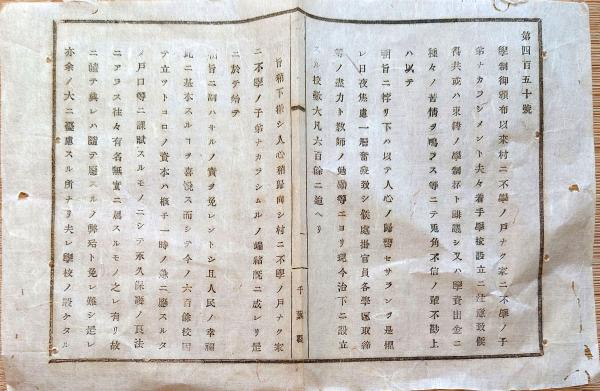 第四百五十號
學制御頒布以来村ニ不學ノ戸ナク家ニ不學ノ子
弟ナカラシメント夫々着手學校設立ニ注意致候
得共或ハ束縛ノ學制杯ト誹譏シ又ハ學資出金ニ
種々ノ苦情ヲ鳴ラス等ニテ兎角不信ノ輩不尠上
ハ以テ
朝旨ニ悖リ下ハ以テ人心ノ歸嚮セサランヿヲ是
レ日夜焦慮一層奮發致シ候處掛官員各學區取締
等ノ盡力ト教師ノ勉勵等ニヨリ現今治下ニ設立
スル校數大凡六百餘ニ迨ヘリ
旨稍下徹シ人心稍歸向シ村ニ不學ノ戸ナク家
ニ不學ノ子弟ナカラシムルノ端緒既ニ成レリ是
ニ於テ始テ
朝旨ニ副ハサルノ責ヲ免レントシ且人民ノ幸福
此ニ基本スルヿヲ喜悦ス而シテ今ノ六百餘校因
テ立ツトコロノ資本ハ概子一時ノ義ニ勝スルタ
メ戸口等ニ課賦スルモノニシテ永久保護ノ良法
ニアラス往々有名無實ニ属スルモノ之レ有リ故
ニ随テ興レハ随テ廢スルノ弊殆ト免レ難シ是レ
亦余ノ大ニ憂慮スル所ナリ夫レ學校ノ設ケタル
千葉縣